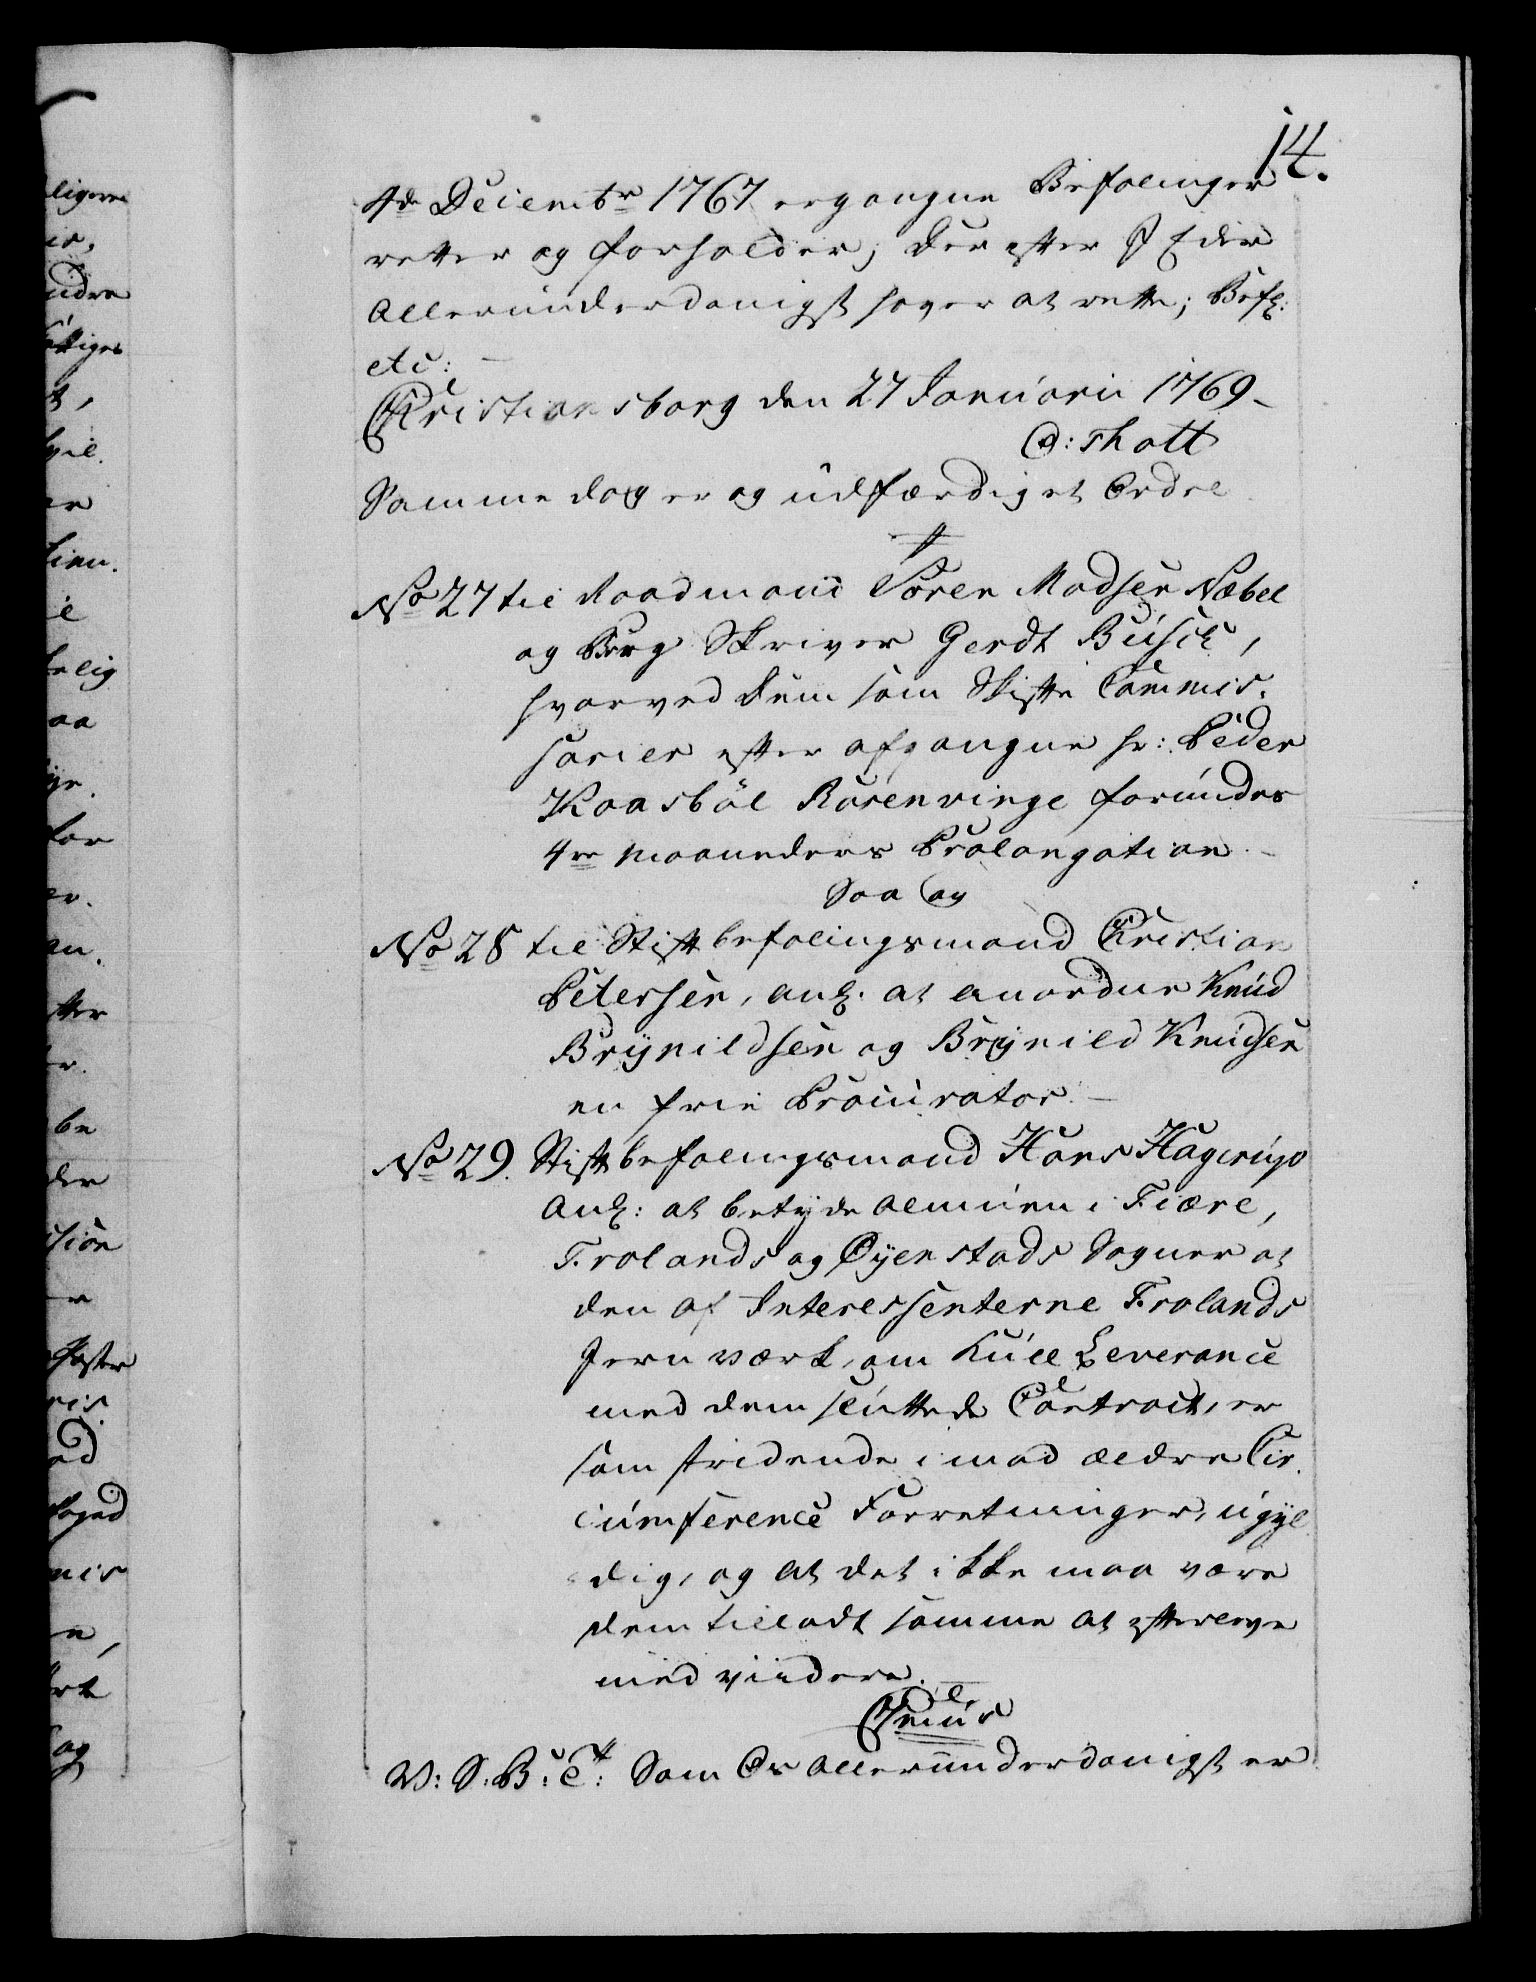 14.
4de Decembr 1767 ergangne Befalinger
retter og forholder; Der efter I Eder
allerunderdanigst haver at rette; Befl:
etc: –
Christiansborg den 27 Januarii 1769 –
O: Thott
Samme dag er og udfærdiget Ordre
No 27 til Raadmand Søren Madsen Næbel
og Borg Skriver Gerdt Busch,
hvorved dem som Skifte Commis-
sarier efter afgangne hr: Peder
Kaasbøl Rosenvinge forundes
4re Maaneders Prolongation. –
Saa og
No 28 til Stiftbefalingsmand Christian
Petersen, anl. at anordne Knud
Brynildsen og Brynild Knudsen
en frie Procurator. –
No 29. Stiftbefalingsmand Hans Hagerup
anl: at betyde Almuen i Fiære,
Frolands og Øyenstads Sogner at
den af Interessenterne Frolands
Jernværk, om Kull Leverance
med dem sluttede Contract, er
som stridende imod ældre Cir-
cumference Forretninger, ugyl-
dig, og at det ikke maa være
dem tilladt samme at efterleve
med videre. –
V: S: B: etc: Som Os allerunderdanigst er